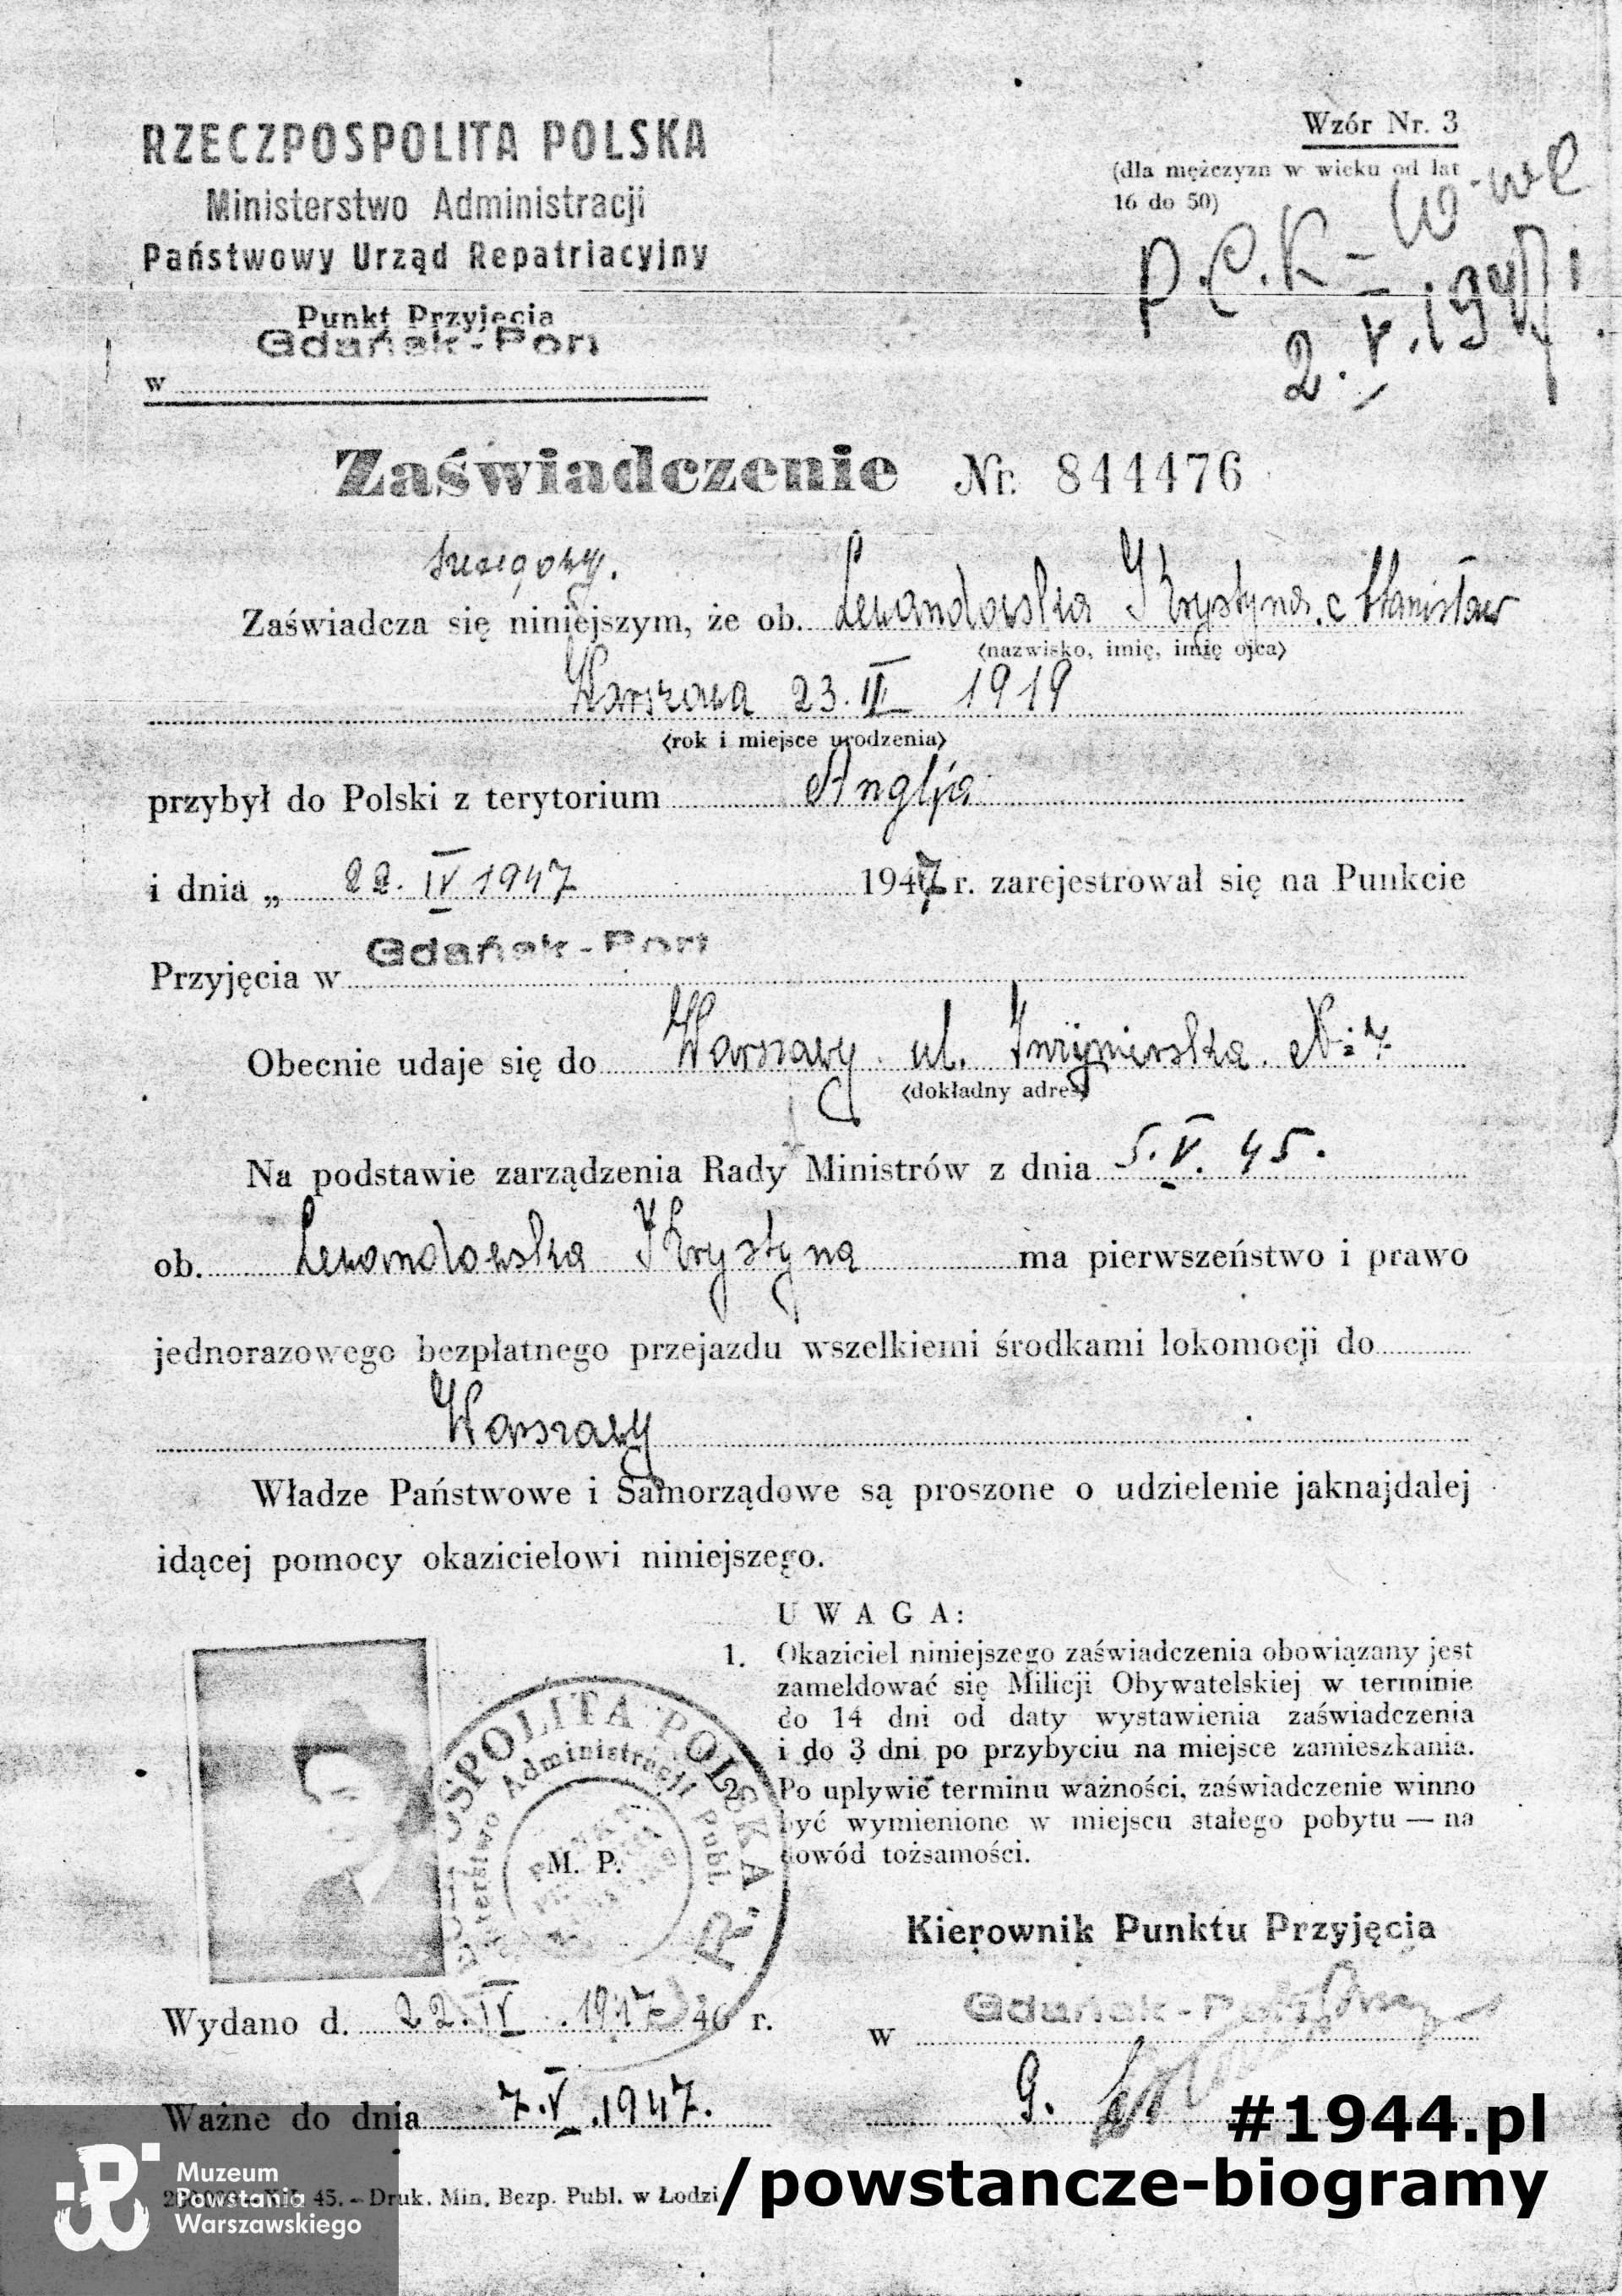 RZECZPOSPOLITA POLSKA
Ministerstwo Administracji
Państwowy Urząd Repatriacyjny
Punkt Przyjęcia
Gdańsk-Port
w
Wzór Nr. 3
(dla mężczyzn w wieku od lat
16 do 50)
P.C.K -
2.V.1947
Zaświadczenie Nr. 844476
Zaświadcza się niniejszym, że ob. Lewandowska Krystyna c Stanisław
(nazwisko, imię, imię ojca)
Warszawa 23. 1919
(rok i miejsce urodzenia)
przybył do Polski z terytorium Anglja
i dnia „ 22. IV 1947 1947 r. zarejestrował się na Punkcie
Przyjęcia w Gdańsk-Port
Obecnie udaje się do Warszawy ul. 7
(dokładny adres)
Na podstawie zarządzenia Rady Ministrów z dnia 5.V.45.
ob. Lewandowska Krystyna ma pierwszeństwo i prawo
jednorazowego bezpłatnego przejazdu wszelkiemi środkami lokomocji do
Warszawy
Władze Państwowe i Samorządowe są proszone o udzielenie jaknajdalej
idącej pomocy okazicielowi niniejszego.
UWAGA:
1. Okaziciel niniejszego zaświadczenia obowiązany jest
zameldować się Milicji Obywatelskiej w terminie
do 14 dni od daty wystawienia zaświadczenia
i do 3 dni po przybyciu na miejsce zamieszkania.
2. Po upływie terminu ważności, zaświadczenie winno
być wymienione w miejscu stałego pobytu — na
dowód tożsamości.
SPOLITA POLSKA
Administracji Publ.
M. P.
Kierownik Punktu Przyjęcia
Wydano d. 22.IV.1947 46 r.
w Gdańsk-Port
Ważne do dnia 7.V.1947.
45. - Druk. Min. Bezp. Publ. w Łodzi
Muzeum
Powstania
Warszawskiego
#1944.pl
/powstancze-biogramy